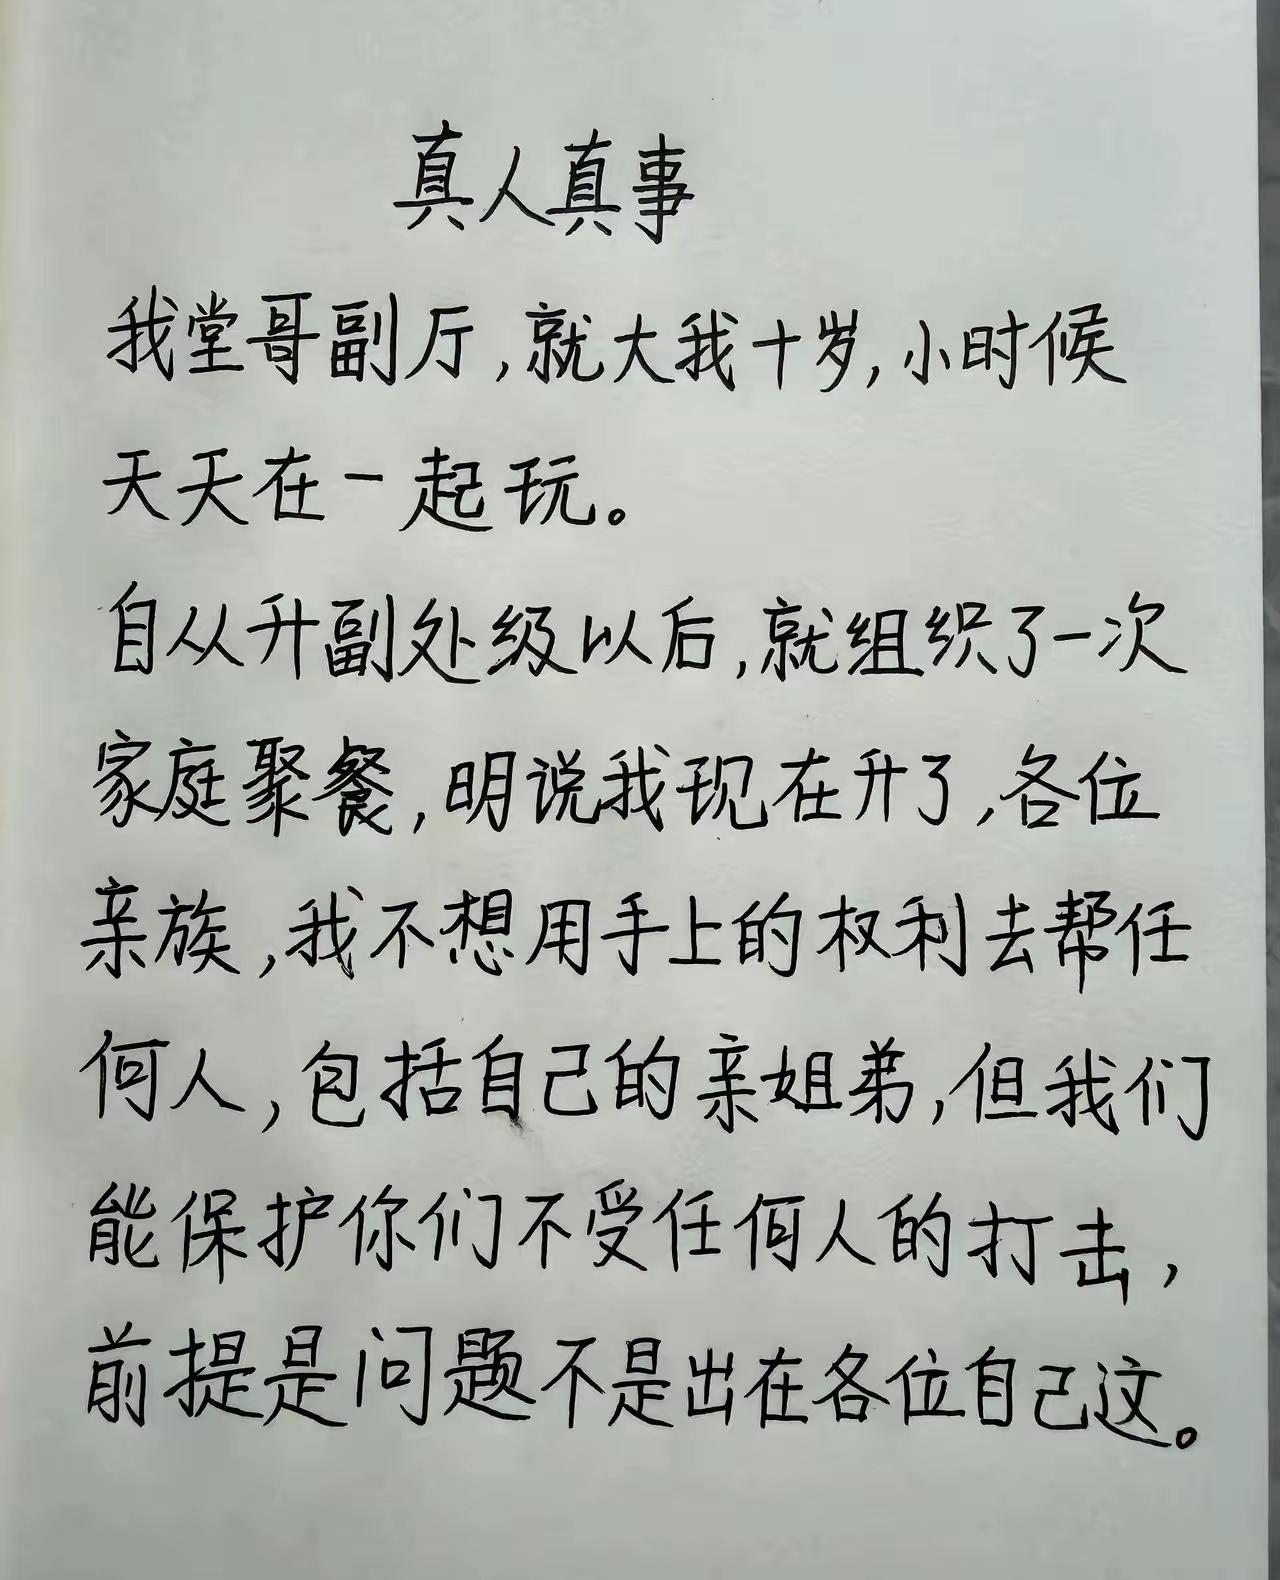 真人真事
我堂哥副厅,就大我十岁,小时候
天天在一起玩。
自从升副处级以后,就组织了一次
家庭聚餐,明说我现在升了,各位
亲族,我不想用手上的权利去帮任
何人,包括自己的亲姐弟,但我们
能保护你们不受任何人的打击,
前提是问题不是出在各位自己这。